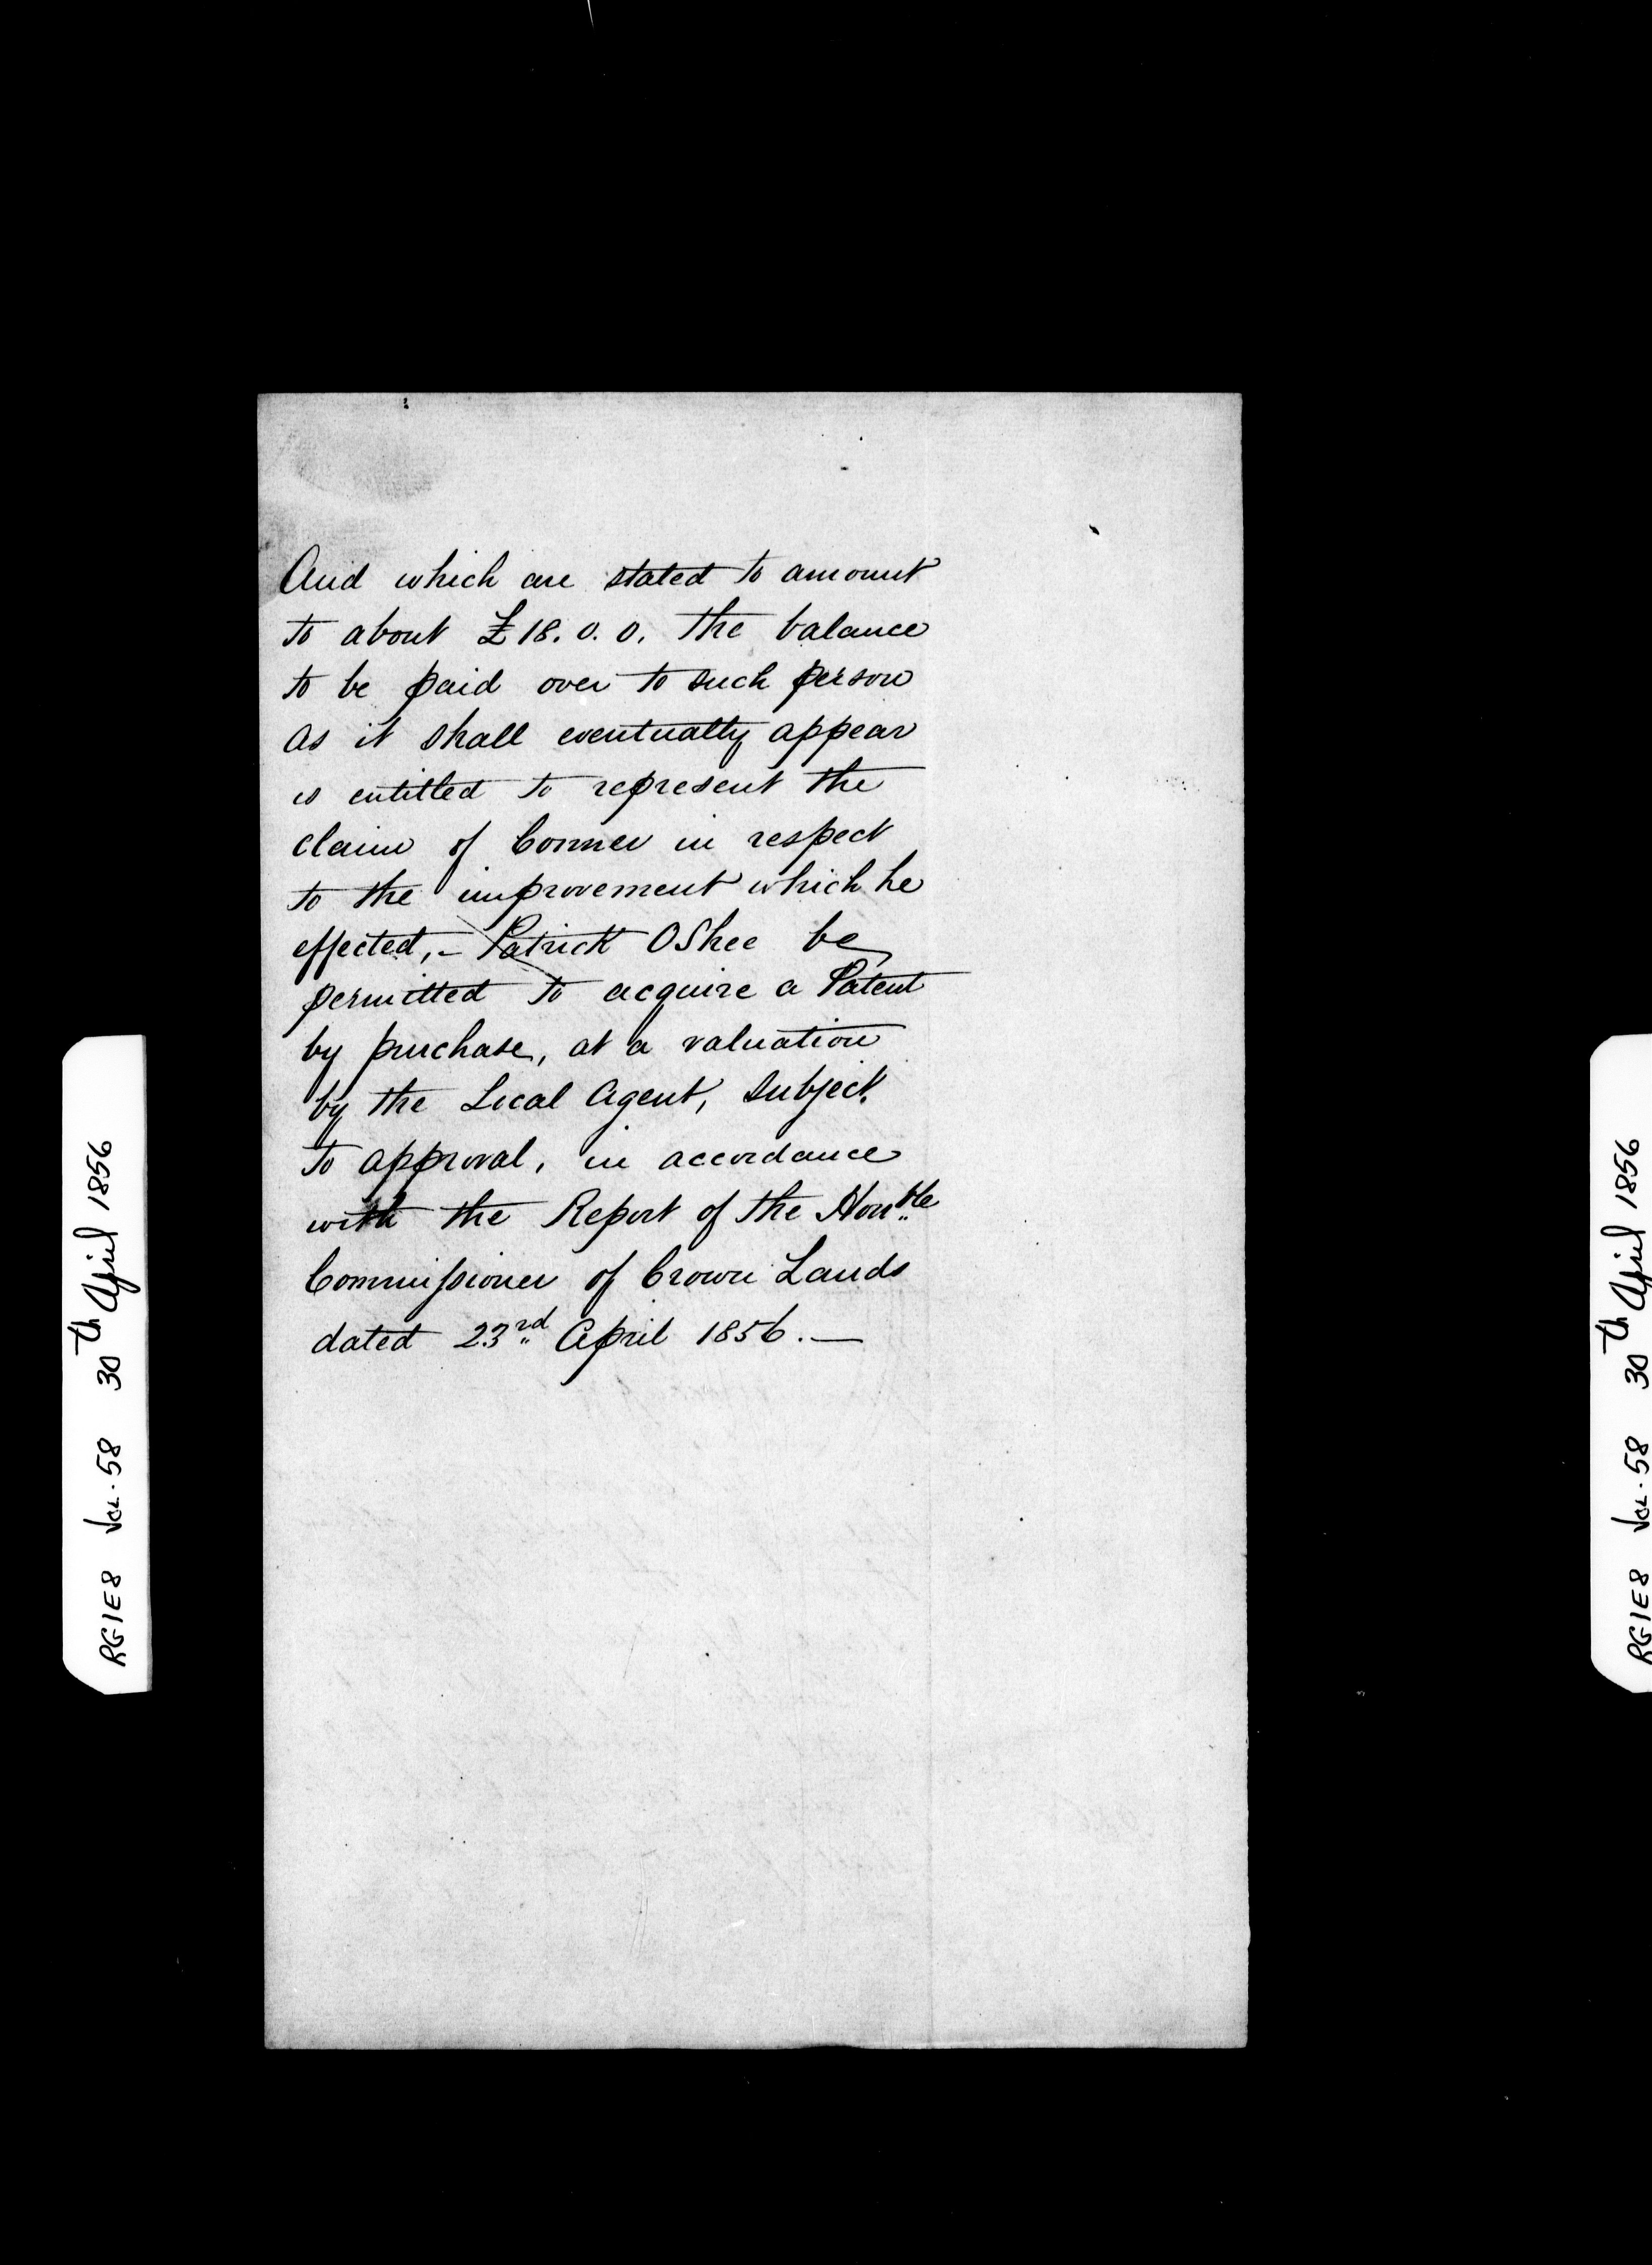 And which are stated to amount
to about £18. 0. 0. the balance
to be paid over to such person
as it shall eventually appear
is entitled to represent the
claim of Conner in respect
to the improvement which he
effected, – Patrick OShee be
permitted to acquire a Patent
by purchase, at a valuation
by the Local Agent, subject
to approval, in accordance
with the Report of the Honble
Commissioner of Crown Lands
dated 23rd April 1856. —
RG1E8 Vol. 58 30th April 1856
RG1E8 Vol. 58 30th April 1856